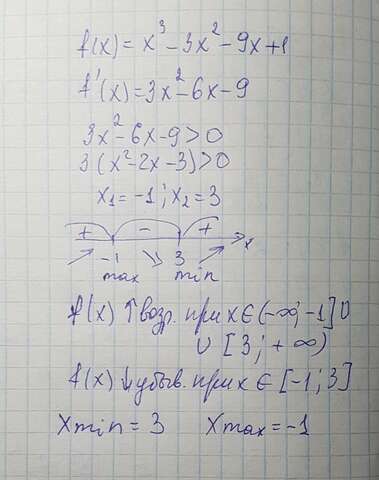 f(x) = x³ - 3x² - 9x + 1
f'(x) = 3x² - 6x - 9
3x² - 6x - 9 > 0
3(x² - 2x - 3) > 0
x₁ = -1; x₂ = 3
+ - +
-1 ↘ 3 ↗ x
max min
f(x) ↑ возр. при x ∈ (-∞; -1] ∪
∪ [3; +∞)
f(x) ↓ убыв. при x ∈ [-1; 3]
Xmin = 3 Xmax = -1